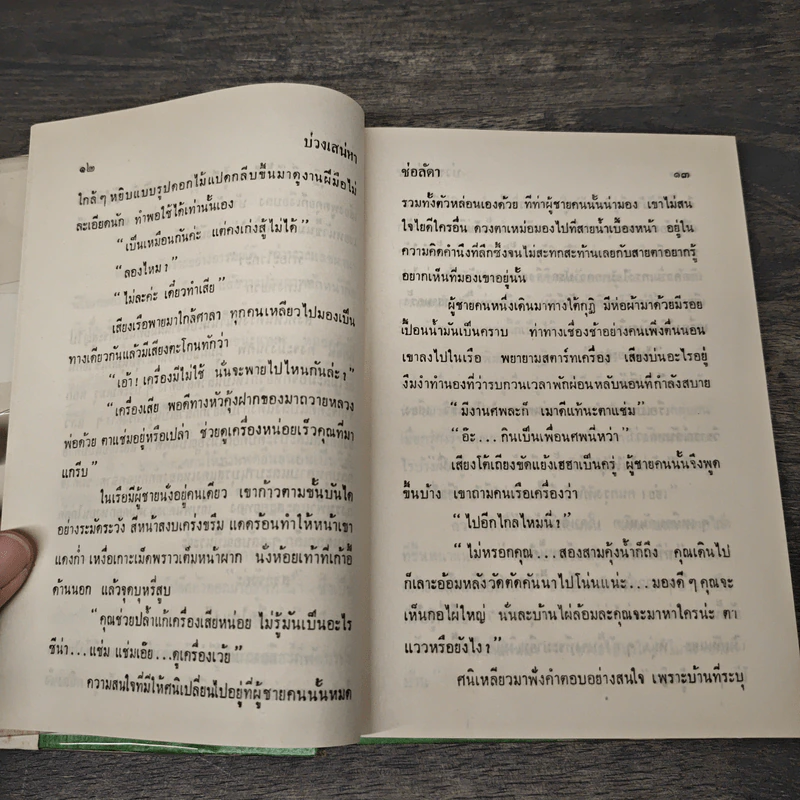 ๑๒
บ่วงเสน่หา
ใกล้ ๆ หยิบแบบรูปดอกไม้แปดกลีบขึ้นมาดูงานฝีมือไม่
ละเอียดนัก ทำพอใช้ได้เท่านั้นเอง
“เป็นเหมือนกันค่ะ แต่คงเก่งสู้ไม่ได้”
“ลองไหม?”
“ไม่ละค่ะ เดี๋ยวทำเสีย”
เสียงเรือพายมาใกล้ศาลา ทุกคนเหลียวไปมองเป็น
ทางเดียวกันแล้วมีเสียงตะโกนทักว่า
“เอ้า! เครื่องมีไม่ใช้ นั่นจะพายไปไหนกันล่ะ?”
“เครื่องเสีย พอดีทางหัวคุ้งฝากของมาถวายหลวง
พ่อด้วย ตาแช่มอยู่หรือเปล่า ช่วยดูเครื่องหน่อยเร็วคุณที่มา
แกรีบ”
ในเรือมีผู้ชายนั่งอยู่คนเดียว เขาก้าวตามขั้นบันได
อย่างระมัดระวัง สีหน้าสงบเคร่งขรึม แดดร้อนทำให้หน้าเขา
แดงก่ำ เหงื่อเกาะเม็ดพราวเต็มหน้าผาก นั่งห้อยเท้าที่เก้าอี้
ด้านนอก แล้วจุดบุหรี่สูบ
“คุณช่วยปล้ำแก้เครื่องเสียหน่อย ไม่รู้มันเป็นอะไร
ซีน่า...แช่ม แช่มเอ๊ย...ดูเครื่องเว้ย”
ความสนใจที่มีให้ศนิเปลี่ยนไปอยู่ที่ผู้ชายคนนั้นหมด
ช่อลัดา
๑๓
รวมทั้งตัวหล่อนเองด้วย ทีท่าผู้ชายคนนั้นน่ามอง เขาไม่สน
ใจไยดีใครอื่น ดวงตาเหม่อมองไปที่สายน้ำเบื้องหน้า อยู่ใน
ความคิดคำนึงที่ลึกซึ้งจนไม่สะทกสะท้านเลยกับสายตาอยากรู้
อยากเห็นที่มองเขาอยู่นั้น
ผู้ชายคนหนึ่งเดินมาทางใต้กุฏิ มีห่อผ้ามาด้วยมีรอย
เปื้อนน้ำมันเป็นคราบ ท่าทางเชื่องช้าอย่างคนเพิ่งตื่นนอน
เขาลงไปในเรือ พยายามสตาร์ทเครื่อง เสียงบ่นอะไรอยู่
งึมงำทำนองที่ว่ารบกวนเวลาพักผ่อนหลับนอนที่กำลังสบาย
“มีงานศพละก็ เมาดีแท้นะตาแช่ม”
“อ๊ะ...กินเป็นเพื่อนศพนี่หว่า”
เสียงโต้เถียงขัดแย้งเฮฮาเป็นครู่ ผู้ชายคนนั้นจึงพูด
ขึ้นบ้าง เขาถามคนเรือเครื่องว่า
“ไปอีกไกลไหมนี่?”
“ไม่หรอกคุณ...สองสามคุ้งน้ำก็ถึง คุณเดินไป
ก็เลาะอ้อมหลังวัดตัดคันนาไปโน่นแน่ะ...มองดี ๆ คุณจะ
เห็นกอไผ่ใหญ่ นั่นละบ้านไผ่ล้อมละคุณจะมาหาใครน่ะ ตา
แววหรือยังไง?”
ศนิเหลียวมาฟังคำตอบอย่างสนใจ เพราะบ้านที่ระบุ